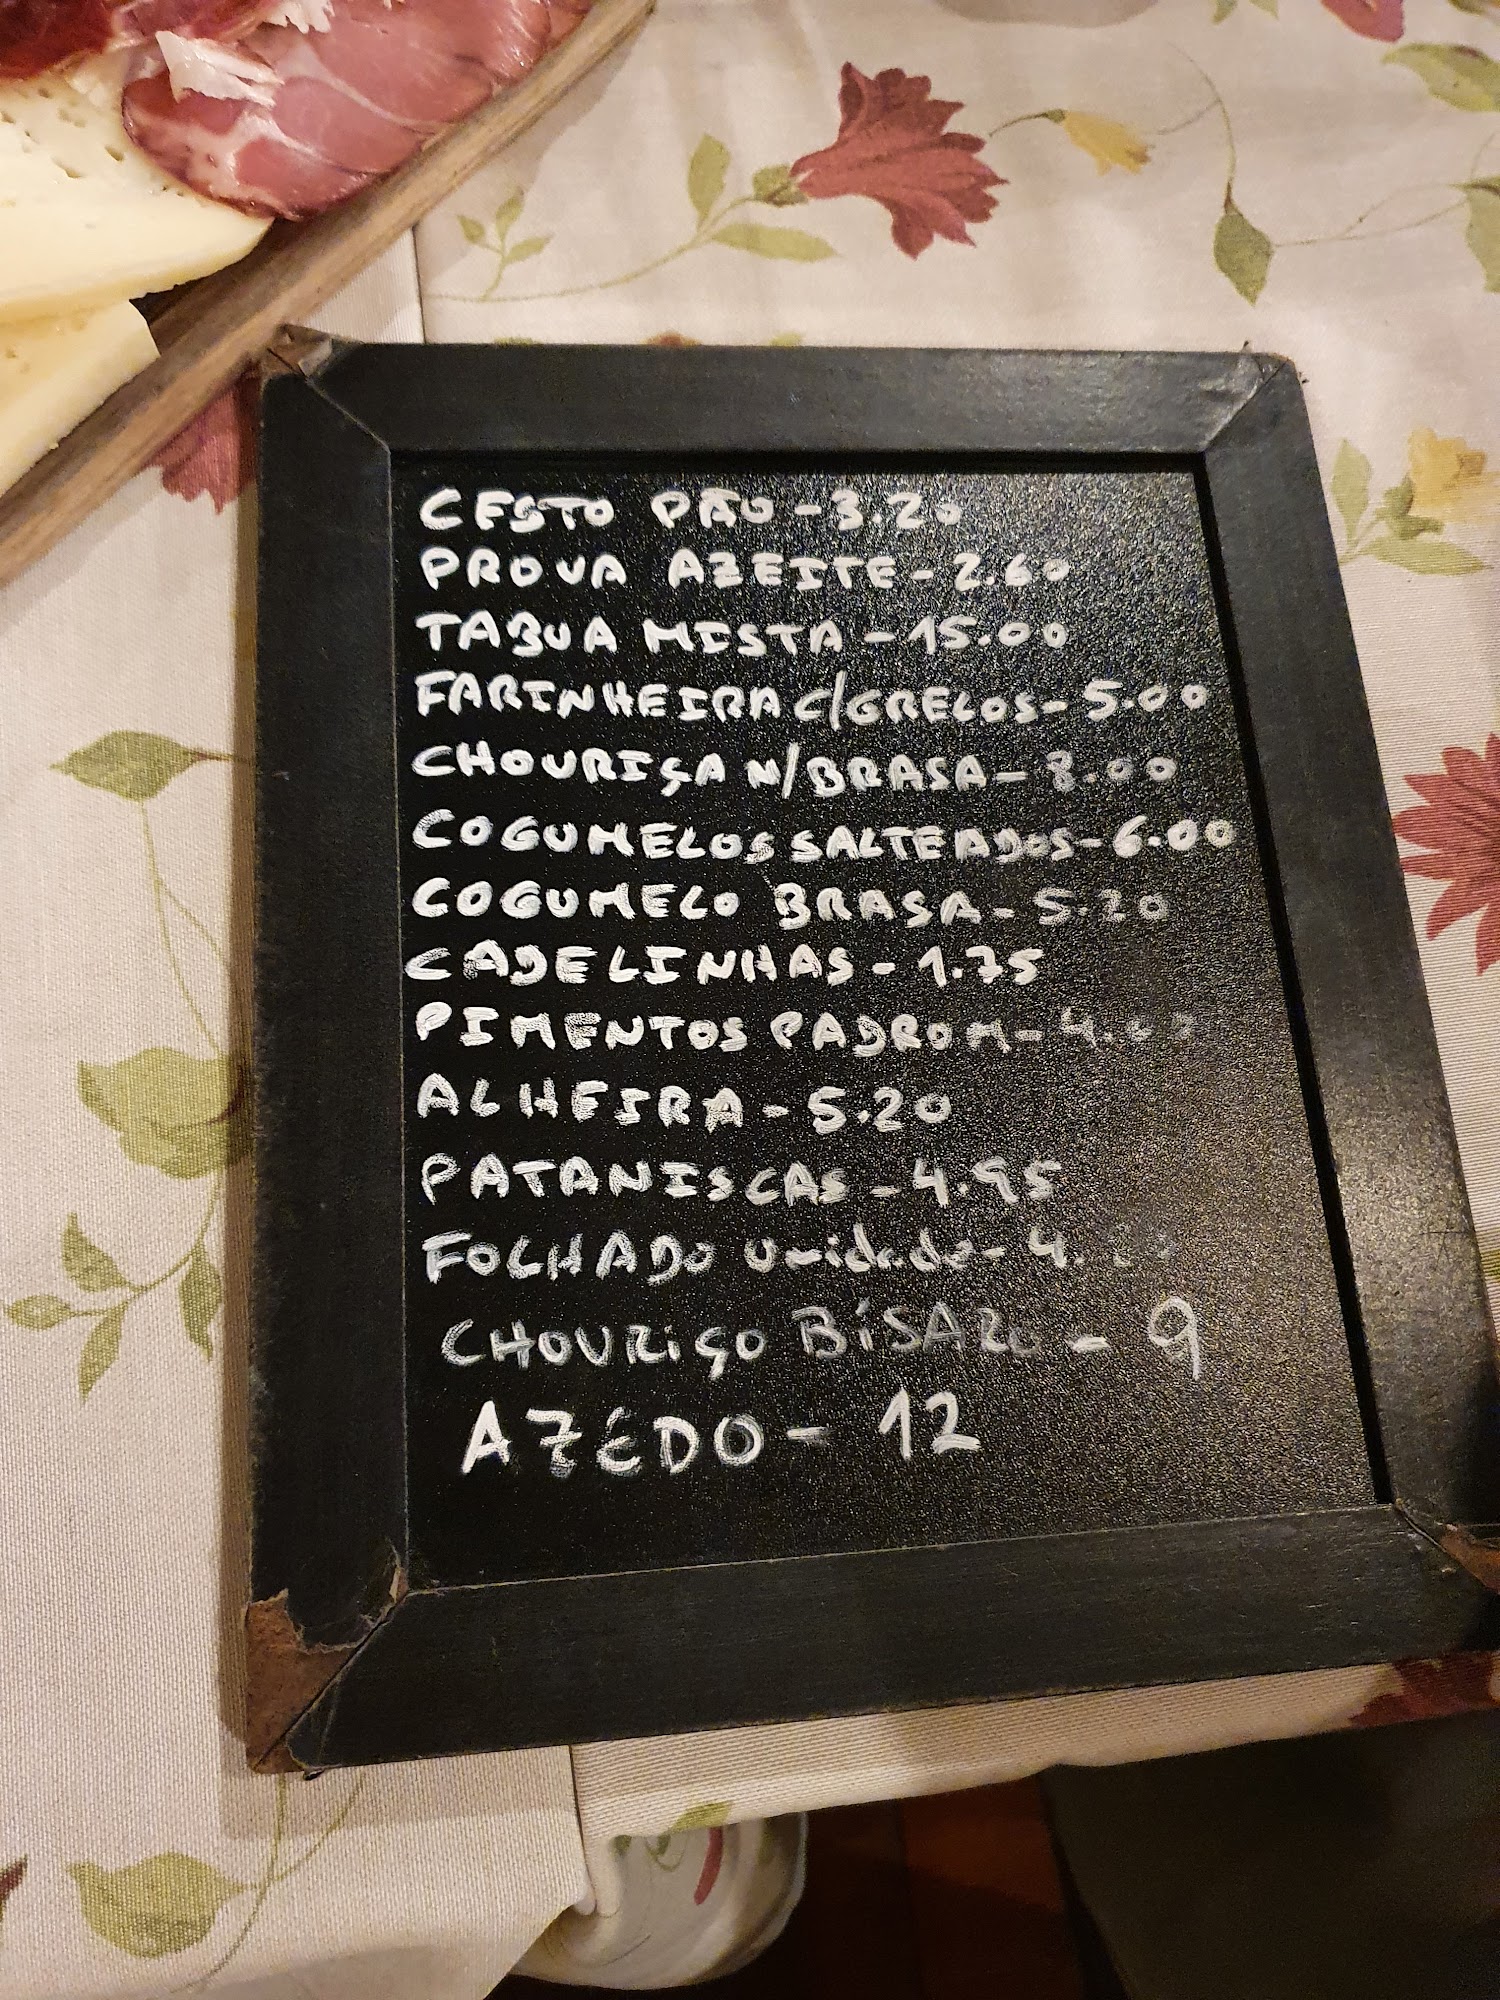 CESTO PÃO - 3.20
PROVA AZEITE - 2.60
TABUA MISTA - 15.00
FARINHEIRA C/GRELOS - 5.00
CHOURIÇA N/BRASA - 8.00
COGUMELOS SALTEADOS - 6.00
COGUMELO BRASA - 5.20
CADELINHAS - 1.75
PIMENTOS PADROM - 4.00
ALHEIRA - 5.20
PATANISCAS - 4.95
FOLHADO unidade -
CHOURIÇO BÍSARO - 9
AZEDO - 12